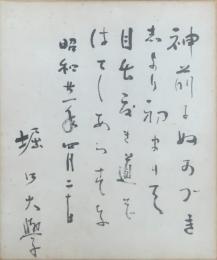 神前にぬかづき
志より初まりて
目出度き道
はてしあらす
昭和廿一年四月二十日
堀口大學